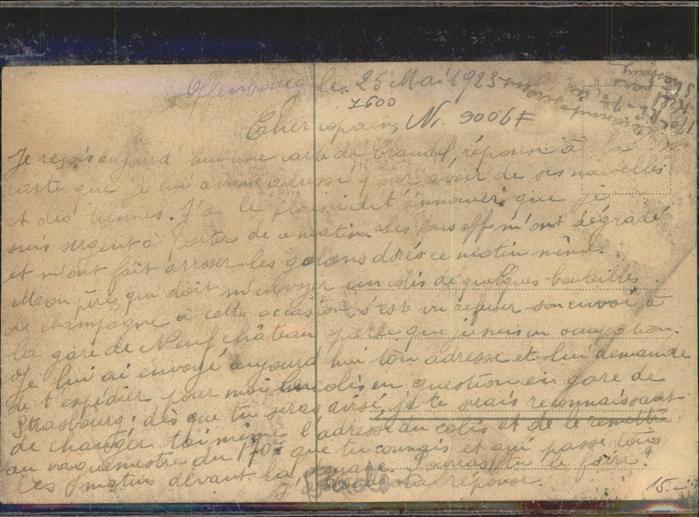 Offenbourg le 25 Mai 1923
7600
Cher copain, Nr. 9006F
Je reçois aujourd'hui une carte de réponse à la
carte que je lui avais adressé pour avoir de ses nouvelles
et des tiennes. J'ai le plaisir de t'annoncer que je
suis sergent à partir de ce matin. Les sous off m'ont dégradé
et m'ont fait arroser les galons dorés ce matin même.
Mon père qui doit m'envoyer un colis de quelques bouteilles
de champagne à cette occasion s'est vu refuser son envoi à
la gare de Neufchâteau parce que je suis en occupation.
Je lui ai envoyé aujourd'hui ton adresse et lui demande
de t'expédier pour moi un colis en question en gare de
Strasbourg. dès que tu seras avisé, je te serais reconnaissant
de changer toi même l'adresse au colis et de le remettre
au vaguemestre du 170e que tu connais et qui passe tous
les matins devant la Pourras tu le faire?
J'attends ta réponse.
15.-